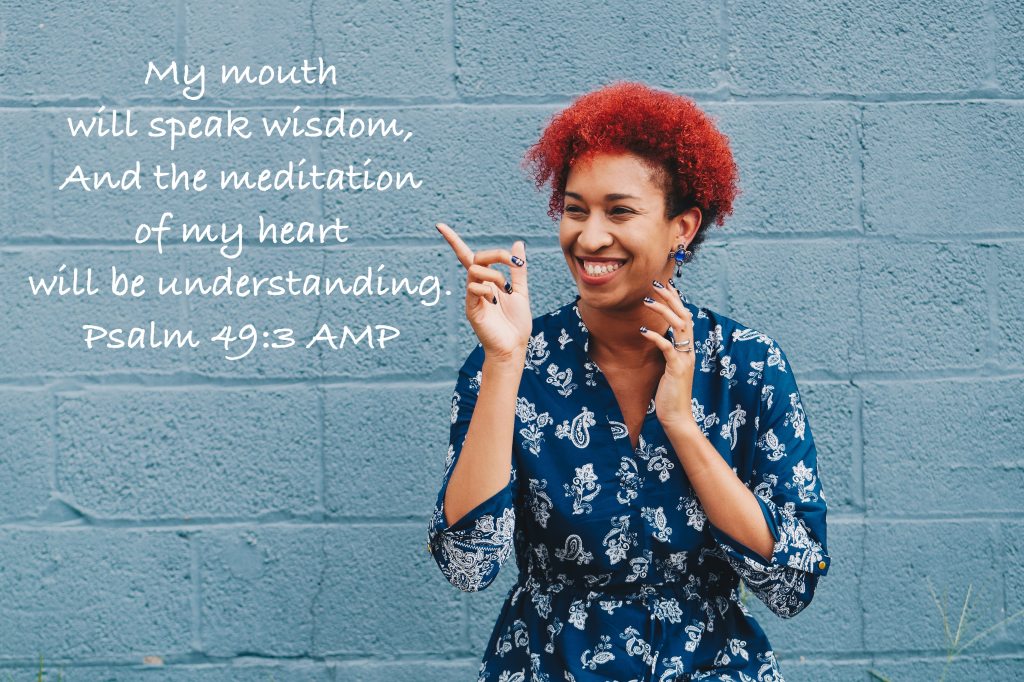 My mouth
will speak wisdom,
And the meditation
of my heart
will be understanding.
Psalm 49:3 AMP